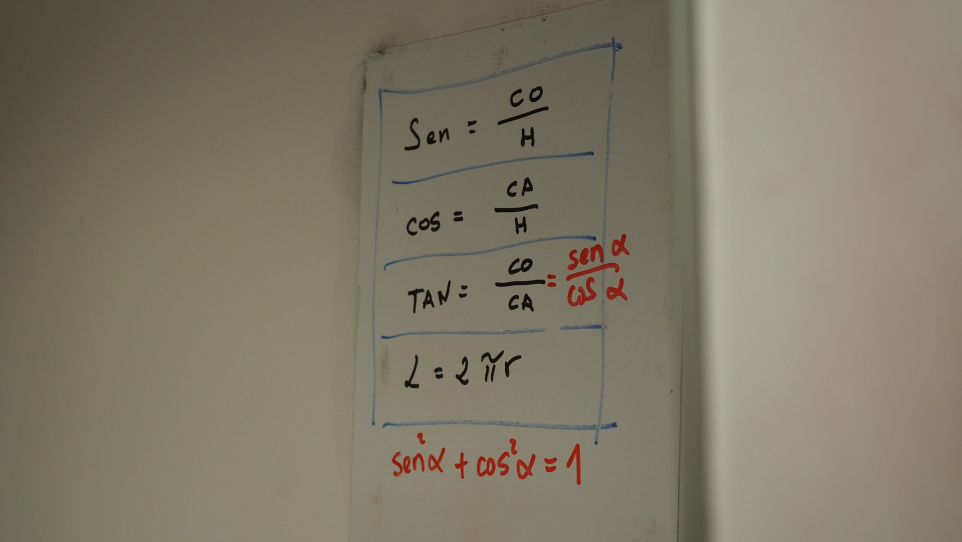 Sen = CO/H
COS = CA/H
TAN = CO/CA = sen α/cos α
L = 2πr
sen²α + cos²α = 1